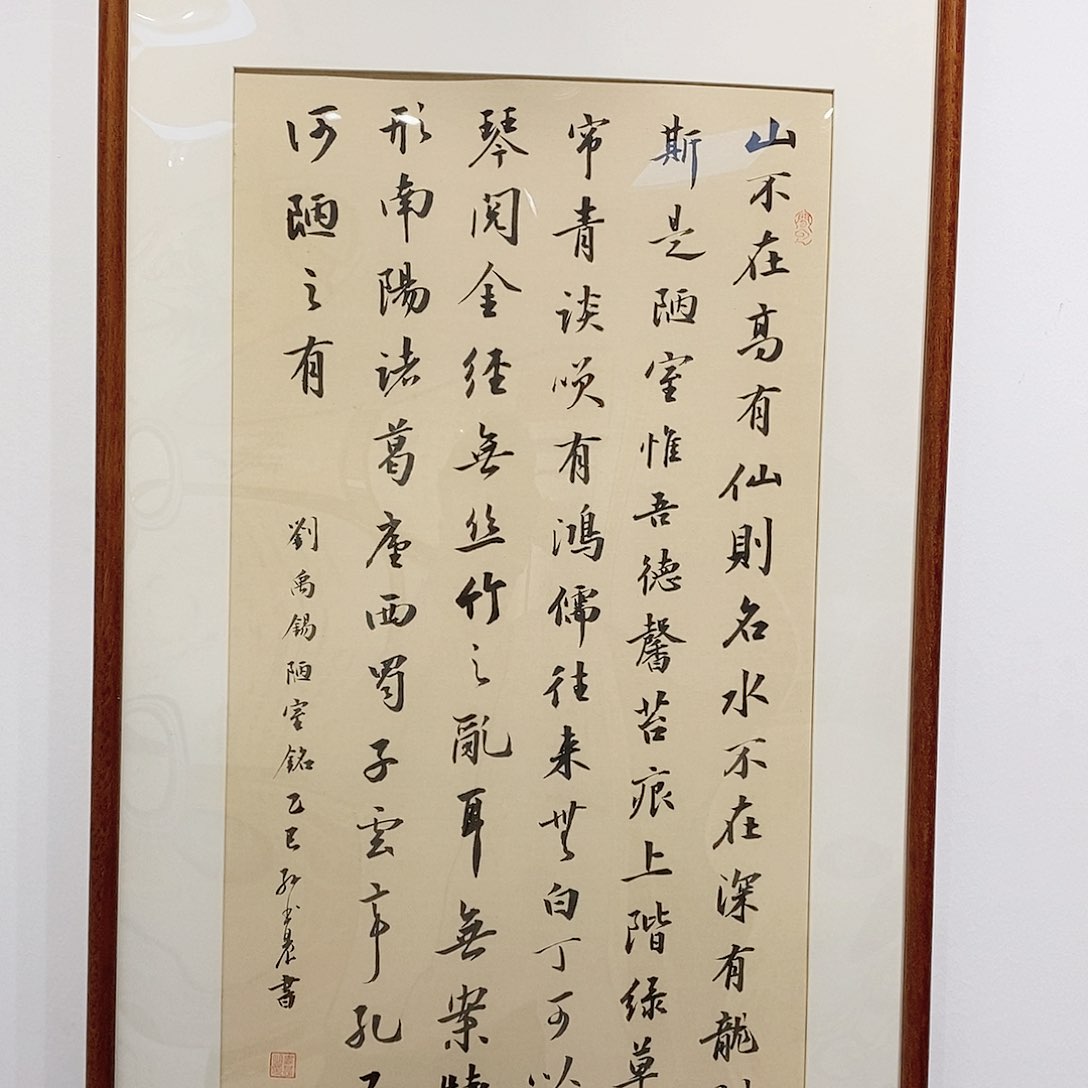 山不在高有仙則名水不在深有龍
斯是陋室惟吾德馨苔痕上階緑草
帘青談咲有鴻儒往来無白丁可以
琴閲金經無丝竹之亂耳無案牘
形南陽諸葛廬西蜀子雲亭孔子
何陋之有
劉禹錫陋室銘乙巳書